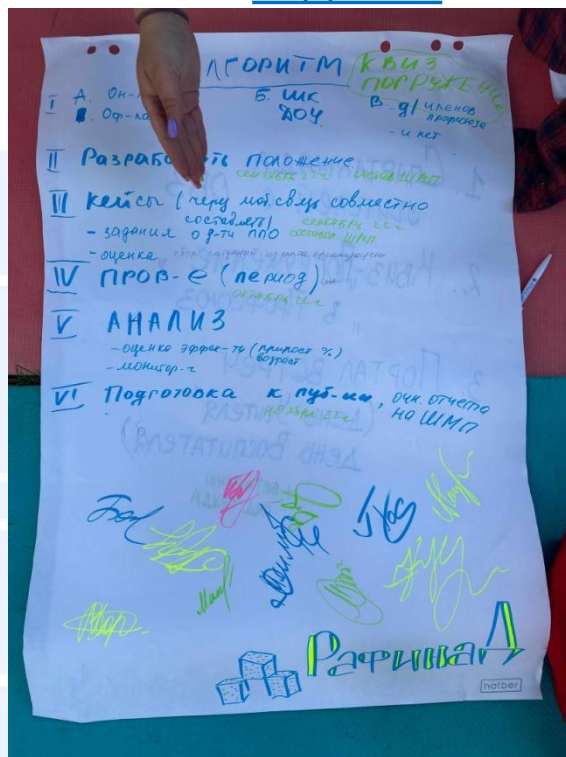 АЛГОРИТМ
КВИЗ
ПОГРУЖЕНИЕ
I А. Он-л
Б. ШК
В. д/членов
Оф-ла
ДОУ
профсоюза
- и нет
II Разработать положение
сентябрь 22 г состав ШМП
III Кейсы (через моб.связь совместно
составлять) сентябрь 22 г
- задания о д-ти ППО состав ШМП
- оценка
IV ПРОВ-Е (период)
октябрь 22 г
V АНАЛИЗ
- оценка эффек-ти (прирост %)
возраст
- монитор-г
VI Подготовка к пуб-ии, очн. отчета
ноябрь 22 г на ШМП
РафинаД
hatber